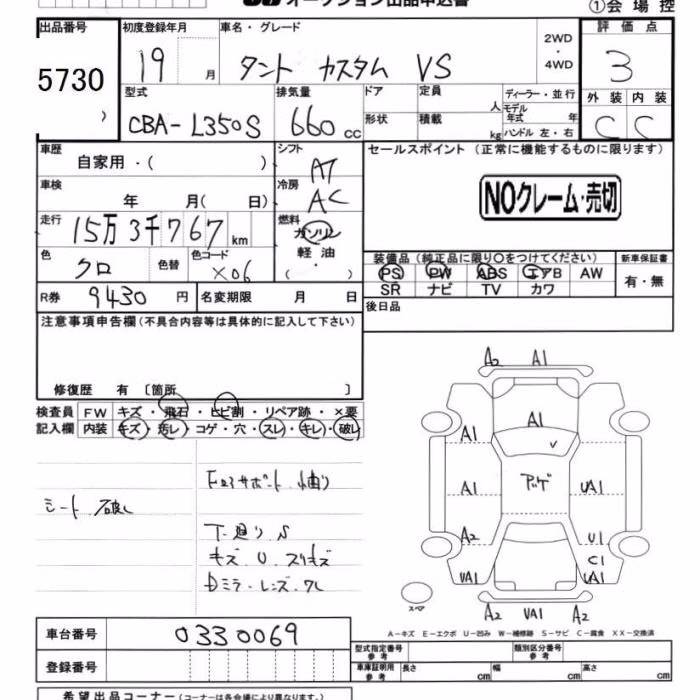 オークション出品申込書
①会場控
出品番号 初度登録年月 車名・グレード 評価点
5730 19 月 タント カスタム VS 2WD・4WD 3
型式 排気量 ドア 定員 人 ディーラー・並行 外装 内装
CBA-L350S 660 cc 形状 積載 kg モデル年式 年 ハンドル 左・右 C C
車歴 自家用・( ) シフト AT セールスポイント (正常に機能するものに限ります)
車検 年 月( 日) 冷房 AC NOクレーム・売切
走行 15万3千767 km 燃料 ガソリン 軽油・( )
色 クロ 色替 色コード X06
装備品 (純正品に限り○をつけてください) 新車保証書
PS PW ABS エアB AW 有・無
SR ナビ TV カワ
R券 9430 円 名変期限 月 日 後日品
注意事項申告欄 (不具合内容等は具体的に記入して下さい)
修復歴 有 〔箇所 〕
検査員 FW キズ・飛石・ヒビ割・リペア跡・×要
記入欄 内装 キズ・汚レ・コゲ・穴・スレ・キレ・破レ
シート 破レ
下廻り S
キズ U スリキズ
A2 A1
A1 A1
A1 アゲ UA1
A2 U1
C1
UA1 UA1
スペア
A2 UA1 A2
A-キズ E-エクボ U-凹み W-補修跡 S-サビ C-腐食 XX-交換済
車台番号 0330069
型式指定番号 参考 類別区分番号 参考
登録番号
車庫証明用 参考 長さ cm 幅 cm 高さ cm
希望出品コーナー (コーナーは各会場により異なります。)